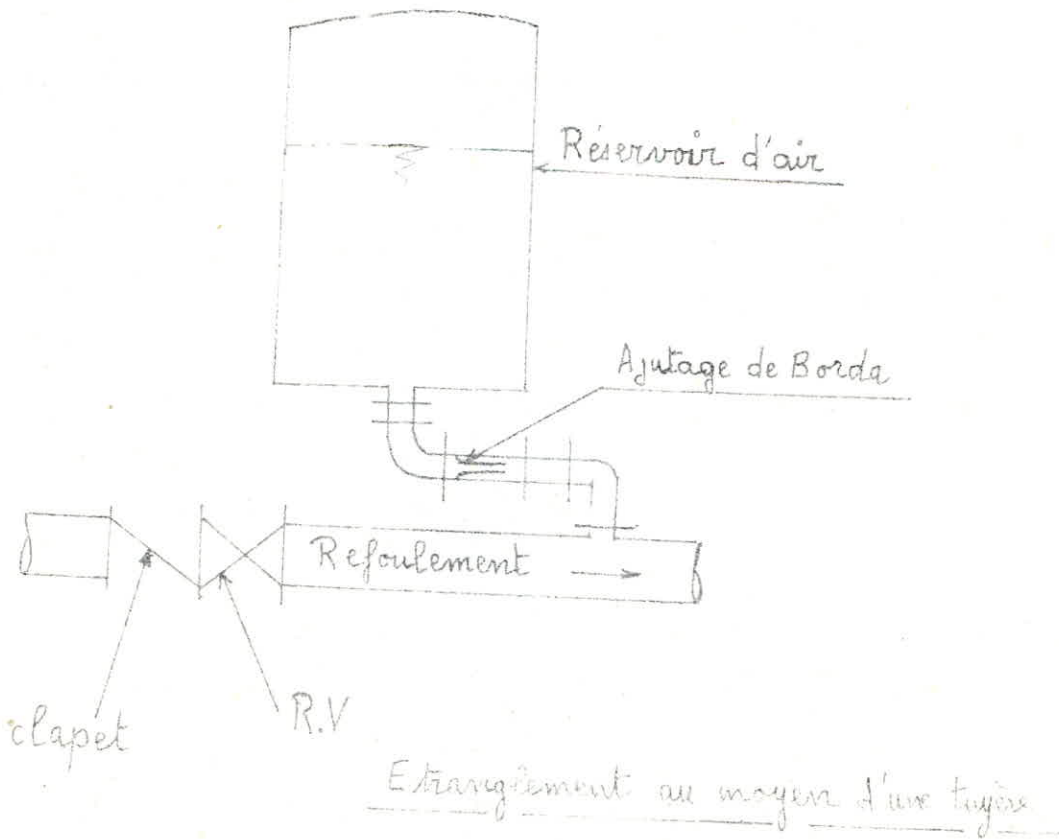 Réservoir d'air
Ajutage de Borda
Refoulement
clapet
R.V
Etranglement au moyen d'une tuyère